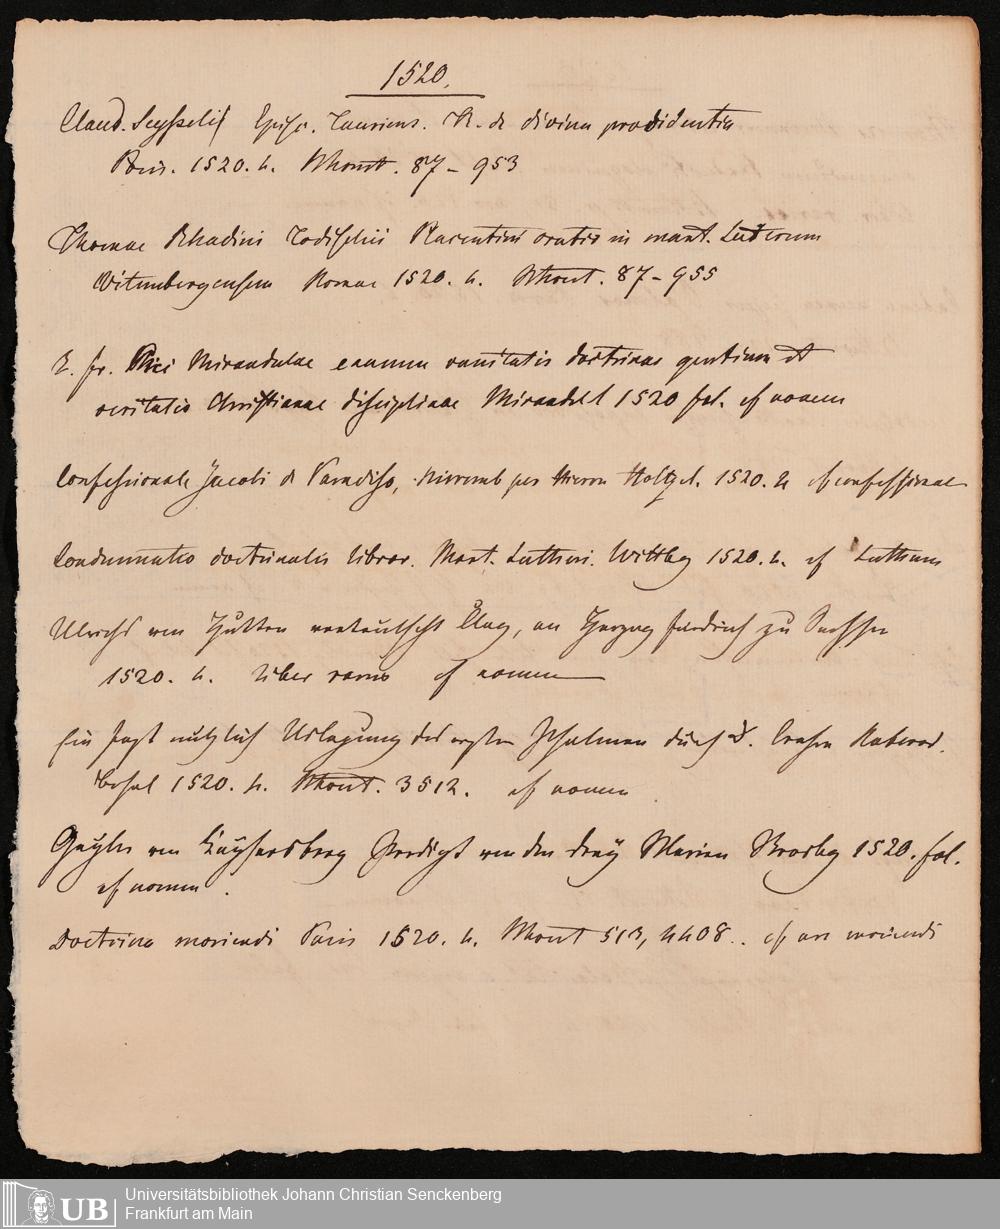 1520.
Claud. Seysselii Episc. Tauriens. de divina providentia
Paris. 1520. 4. 87 - 953
Thomae Rhadini Todischii Placentini oratio in mart. Luterum
Witembergensem Romae 1520. 4. 87 - 955
J. fr. Pici Mirandulae examen vanitatis doctrinae gentium et
veritatis Christianae disciplinae Mirandul 1520 fol. cf nomen
Confessionale Jacobi de Paradiso, Nuremb per Hieron Höltzel. 1520. 4 cf confessional
Condemnatio doctrinalis libror. Mart. Lutheri. Wittbg 1520. 4. cf Lutherum
Ulrichs von Hutten verteutscht Clag, an Herzog Friedrich zu Sachsen
1520. 4. liber rarus cf nomen
Ein fast nutzlich Uslegung des ersten Psalmen durch D. Erasm Roterod.
Basel 1520. 4. 3512. cf nomen
Geyler von Kaysersberg Predigt von den drey Marien Strasbg 1520. fol.
cf nomen.
Doctrina moriendi Paris 1520. 4. 513, 4408.. cf ars moriendi
UB
Universitätsbibliothek Johann Christian Senckenberg
Frankfurt am Main